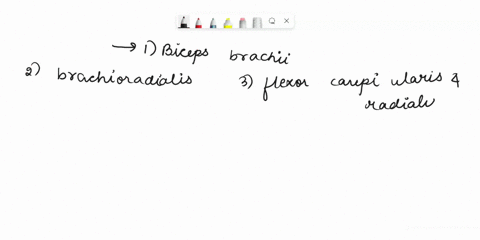 → 1) Biceps brachii
2) brachioradialis 3) flexor carpi ularis &
radialis